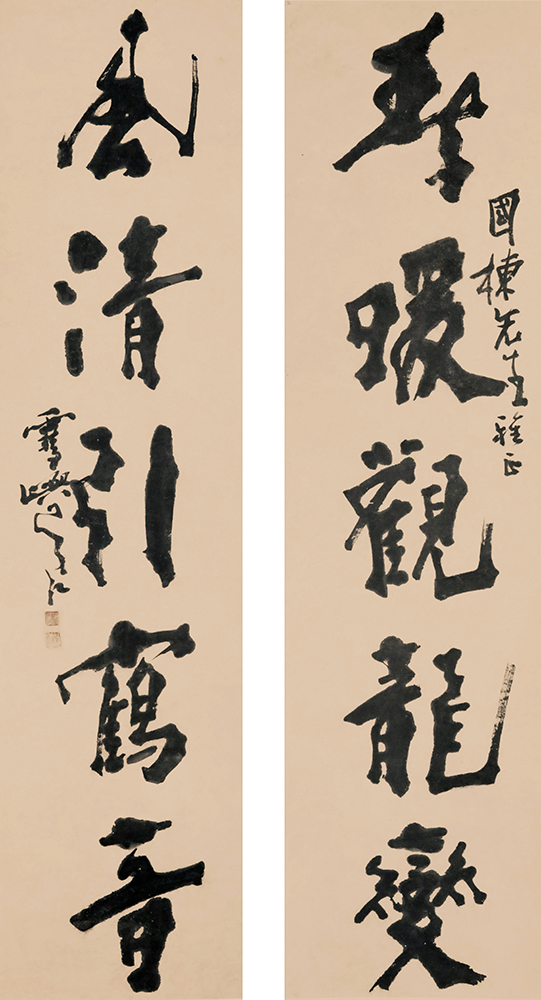 春暖觀龍變
國棟先生雅正
風清引鶴音